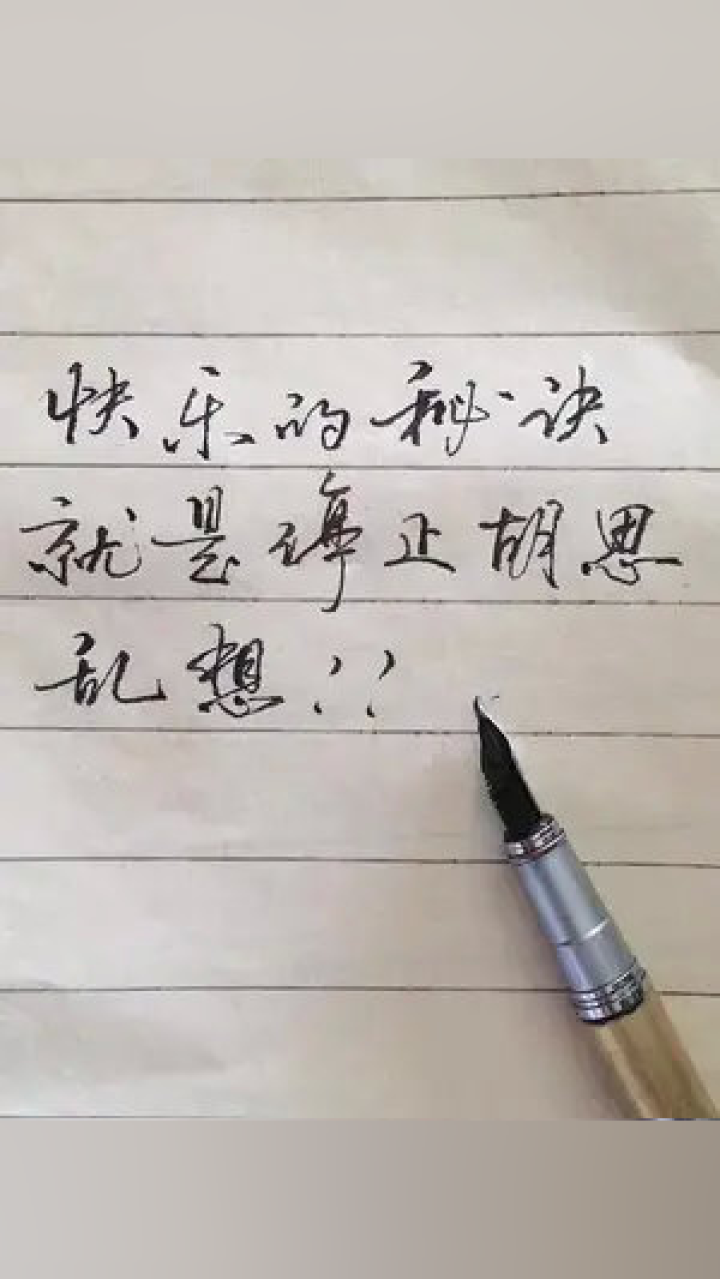 快乐的秘诀
就是停止胡思
乱想!!